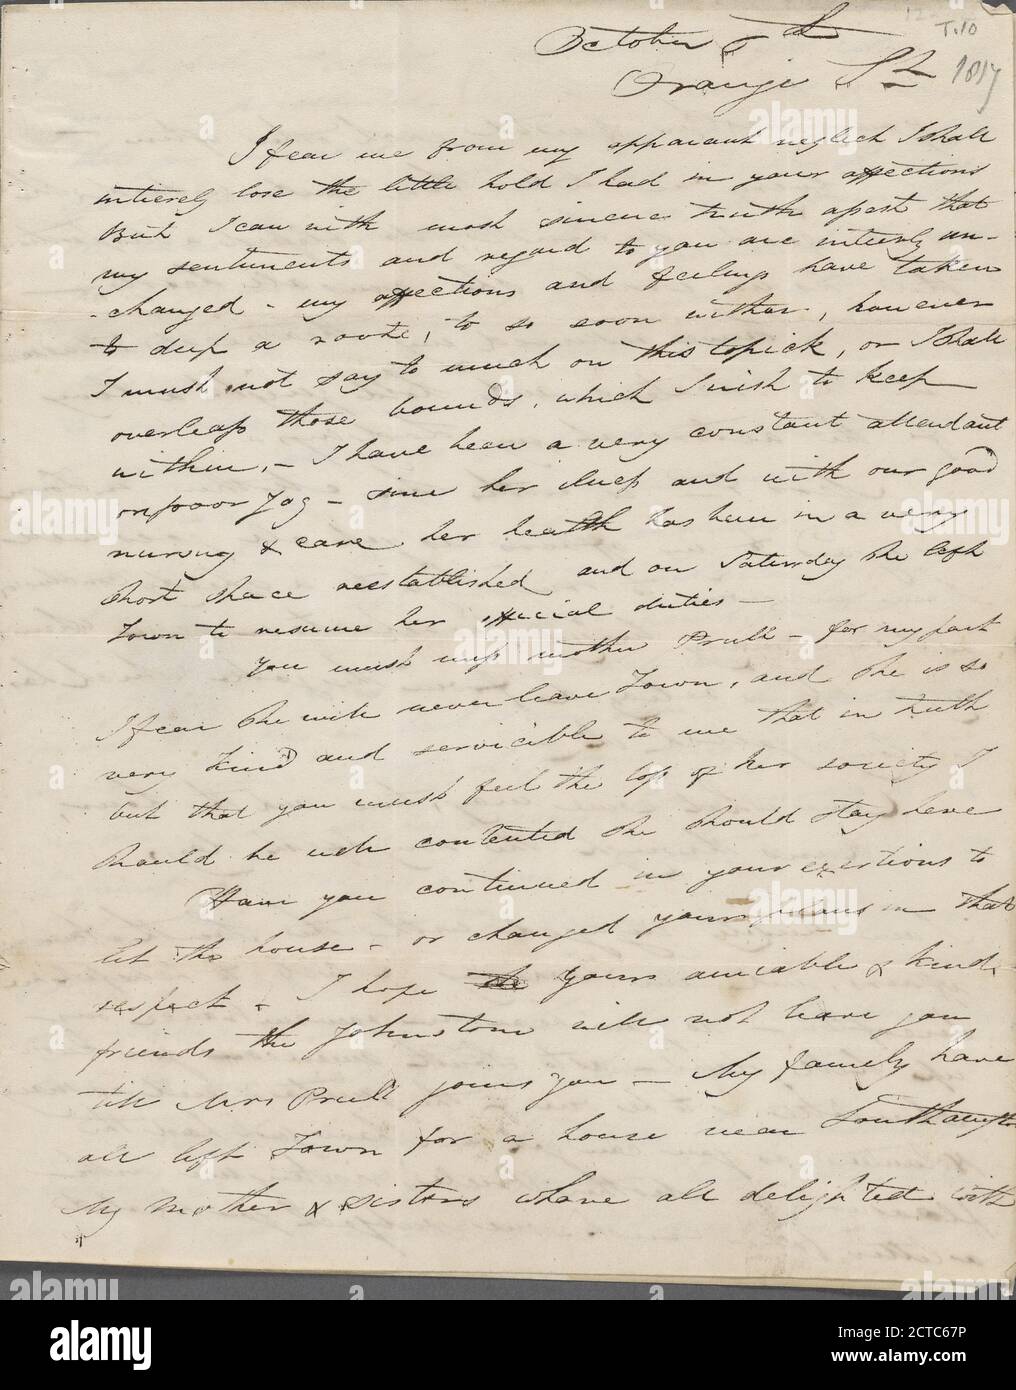 T.10
October 6th
Orange St
1817
I fear me from my apparant neglect I shall
intierely lose the little hold I had in your affections
But I can with most sincere truth assert that
my sentiments and regard to you are intierly un-
-changed - my affections and feelings have taken
to deep a roote, to so soon wither, however
I must not say to much on this topick, or I shall
overleap those bounds, which I wish to keep
within, - I have been a very constant attendant
on poor Jog - since her illness and with our good
nursing & care her health has been in a very
short space reestablished and on Saturday she left
Town to resume her official duties -
You must miss mother Prull - for my part
I fear she will never leave Town, and she is so
very kind and servicible to me that in truth
but that you must feel the loss of her society I
should be well contented she should stay here
Have you continued in your exertions to
let the house - or changed your plans in that
respect - I hope yours amiable & kind
friends the Johnstone will not leave you
till Mrs Prull joins you - My family have
all left Town for a house near Southampton
My mother & sisters where all delighted with
alamy
Image ID: 2CTC67P
www.alamy.com